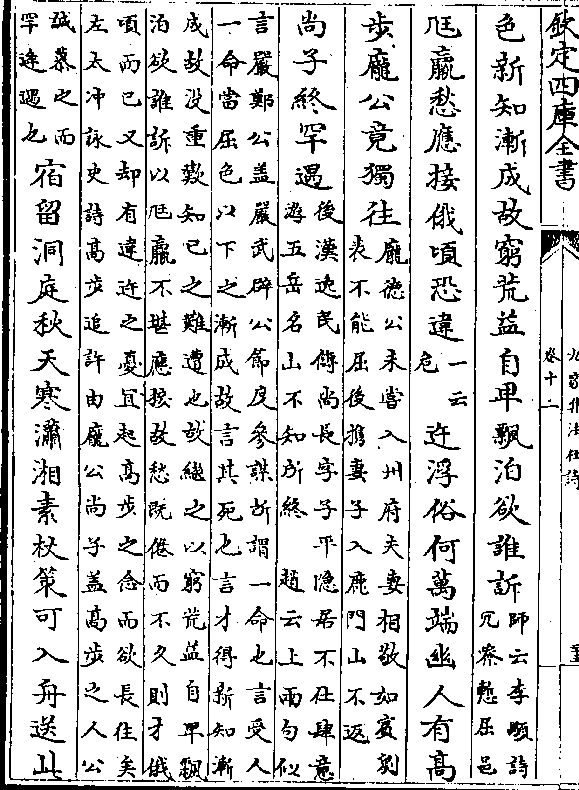 欽定四庫全書
九家集注杜詩
卷十二
色新知漸成故窮荒益自卑飄泊欲誰訴師云李頎詩
冗寮慙屈色
尪羸愁應接俄頃恐違一云
危迕浮俗何萬端幽人有高
步龐公竟獨往龐德公未嘗入州府夫妻相敬如賓劉
表不能屈後攜妻子入鹿門山不返
尚子終罕遇後漢逸民傳尚長字子平隱居不仕肆意
遊五岳名山不知所終 趙云上兩句似
言嚴鄭公盖嚴武辟公節度參謀所謂一命也言受人
一命當屈色以下之漸成故言其死也言才得新知漸
成故没重歎知已之難遭也故繼之以窮荒益自卑飄
泊欲誰訴以尪羸不堪應接故愁既倦而不久則才俄
頃而已又却有違迕之憂冝起高步之念而欲長往矣
左太冲詠史詩高步追許由龐公尚子盖高步之人公
誠慕之而
罕逢遇也宿留洞庭秋天寒瀟湘素杖策可入舟送此